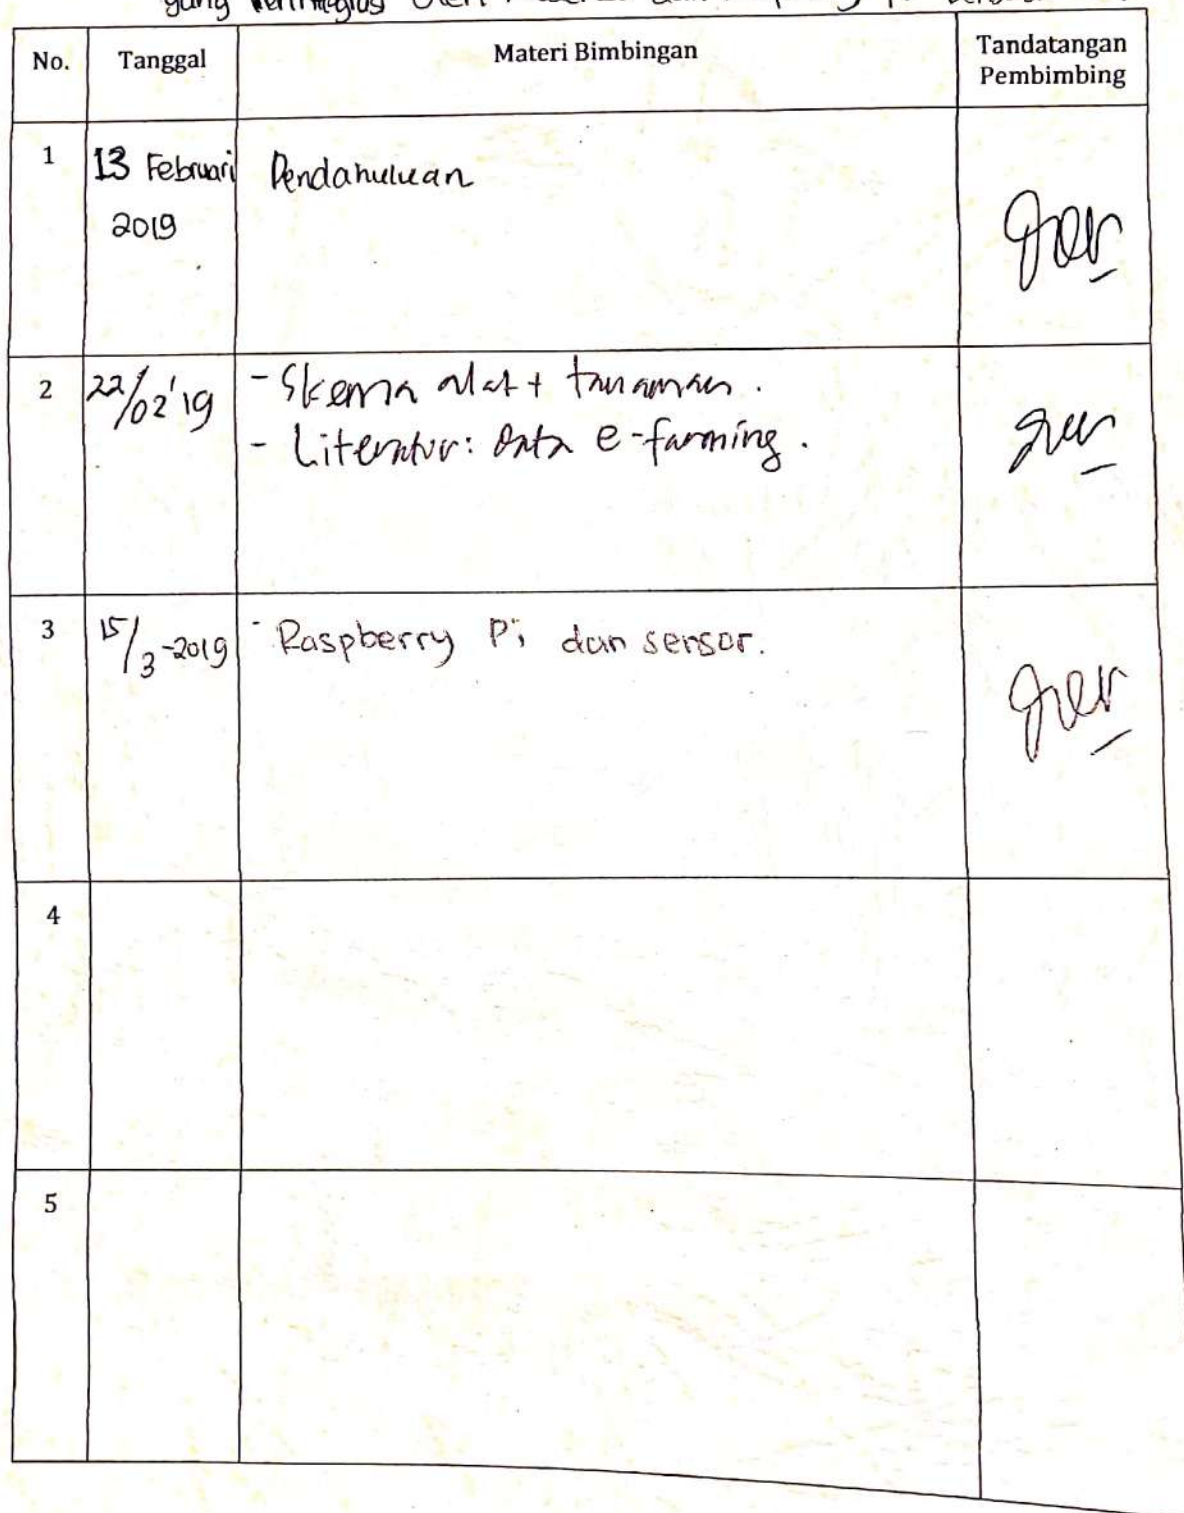 yang oleh
No. Tanggal Materi Bimbingan Tandatangan
Pembimbing
1 13 Februari Pendahuluan
2019
2 22/02'19 - Skema alat + tanaman.
- Literatur: Data e-farming.
3 15/3-2019 - Raspberry Pi dan sensor.
4
5